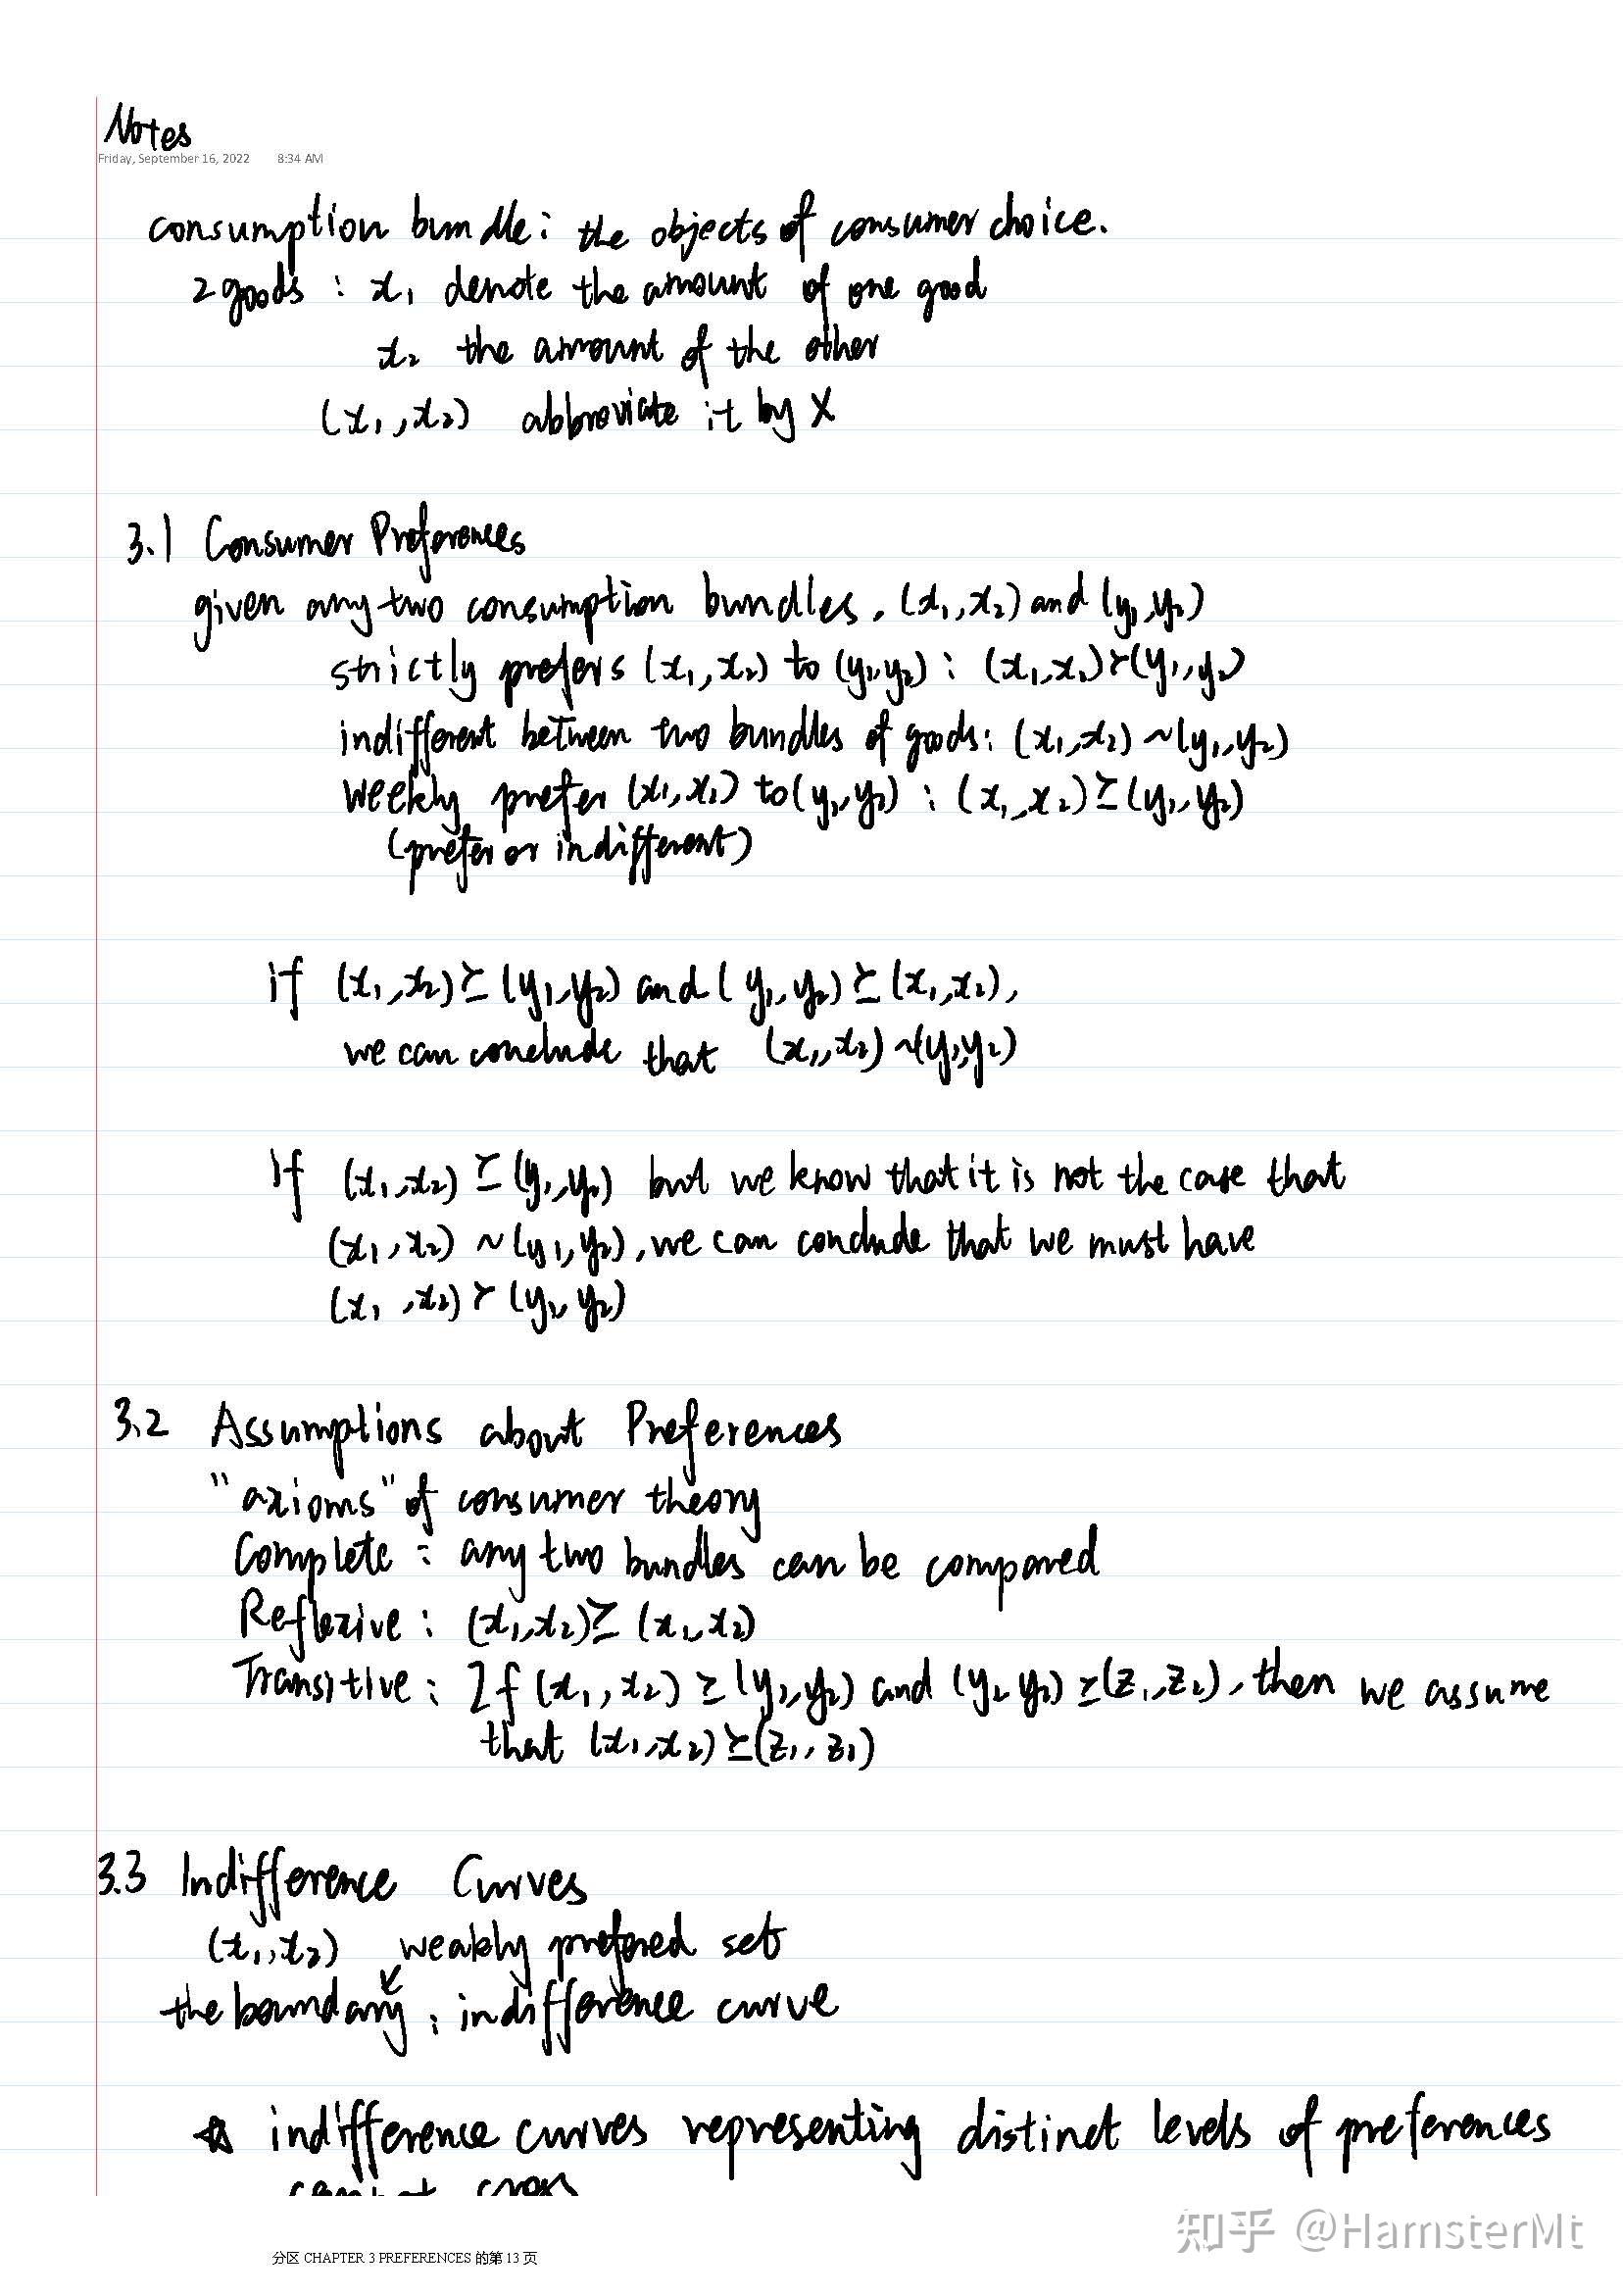 Notes
Friday, September 16, 2022 8:34 AM
consumption bundle: the objects of consumer choice.
2 goods : x₁ denote the amount of one good
x₂ the amount of the other
(x₁, x₂) abbreviate it by X
3.1 Consumer Preferences
given any two consumption bundles, (x₁, x₂) and (y₁, y₂)
strictly prefers (x₁, x₂) to (y₁, y₂) : (x₁, x₂) ≻ (y₁, y₂)
indifferent between two bundles of goods: (x₁, x₂) ~ (y₁, y₂)
weekly prefer (x₁, x₁) to (y₁, y₂) : (x₁, x₂) ⪰ (y₁, y₂)
(prefer or indifferent)
if (x₁, x₂) ⪰ (y₁, y₂) and (y₁, y₂) ⪰ (x₁, x₂),
we can conclude that (x₁, x₂) ~ (y₁, y₂)
if (x₁, x₂) ⪰ (y₁, y₂) but we know that it is not the case that
(x₁, x₂) ~ (y₁, y₂), we can conclude that we must have
(x₁, x₂) ≻ (y₁, y₂)
3.2 Assumptions about Preferences
"axioms" of consumer theory
Complete : any two bundles can be compared
Reflexive : (x₁, x₂) ⪰ (x₁, x₂)
Transitive : If (x₁, x₂) ⪰ (y₁, y₂) and (y₂ y₂) ⪰ (z₁, z₂), then we assume
that (x₁, x₂) ⪰ (z₁, z₁)
3.3 Indifference Curves
(x₁, x₂) weakly prefered set
the boundary : indifference curve
☆ indifference curves representing distinct levels of preferences
cannot cross
知乎 @HamsterMt
分区 CHAPTER 3 PREFERENCES 的第 13 页